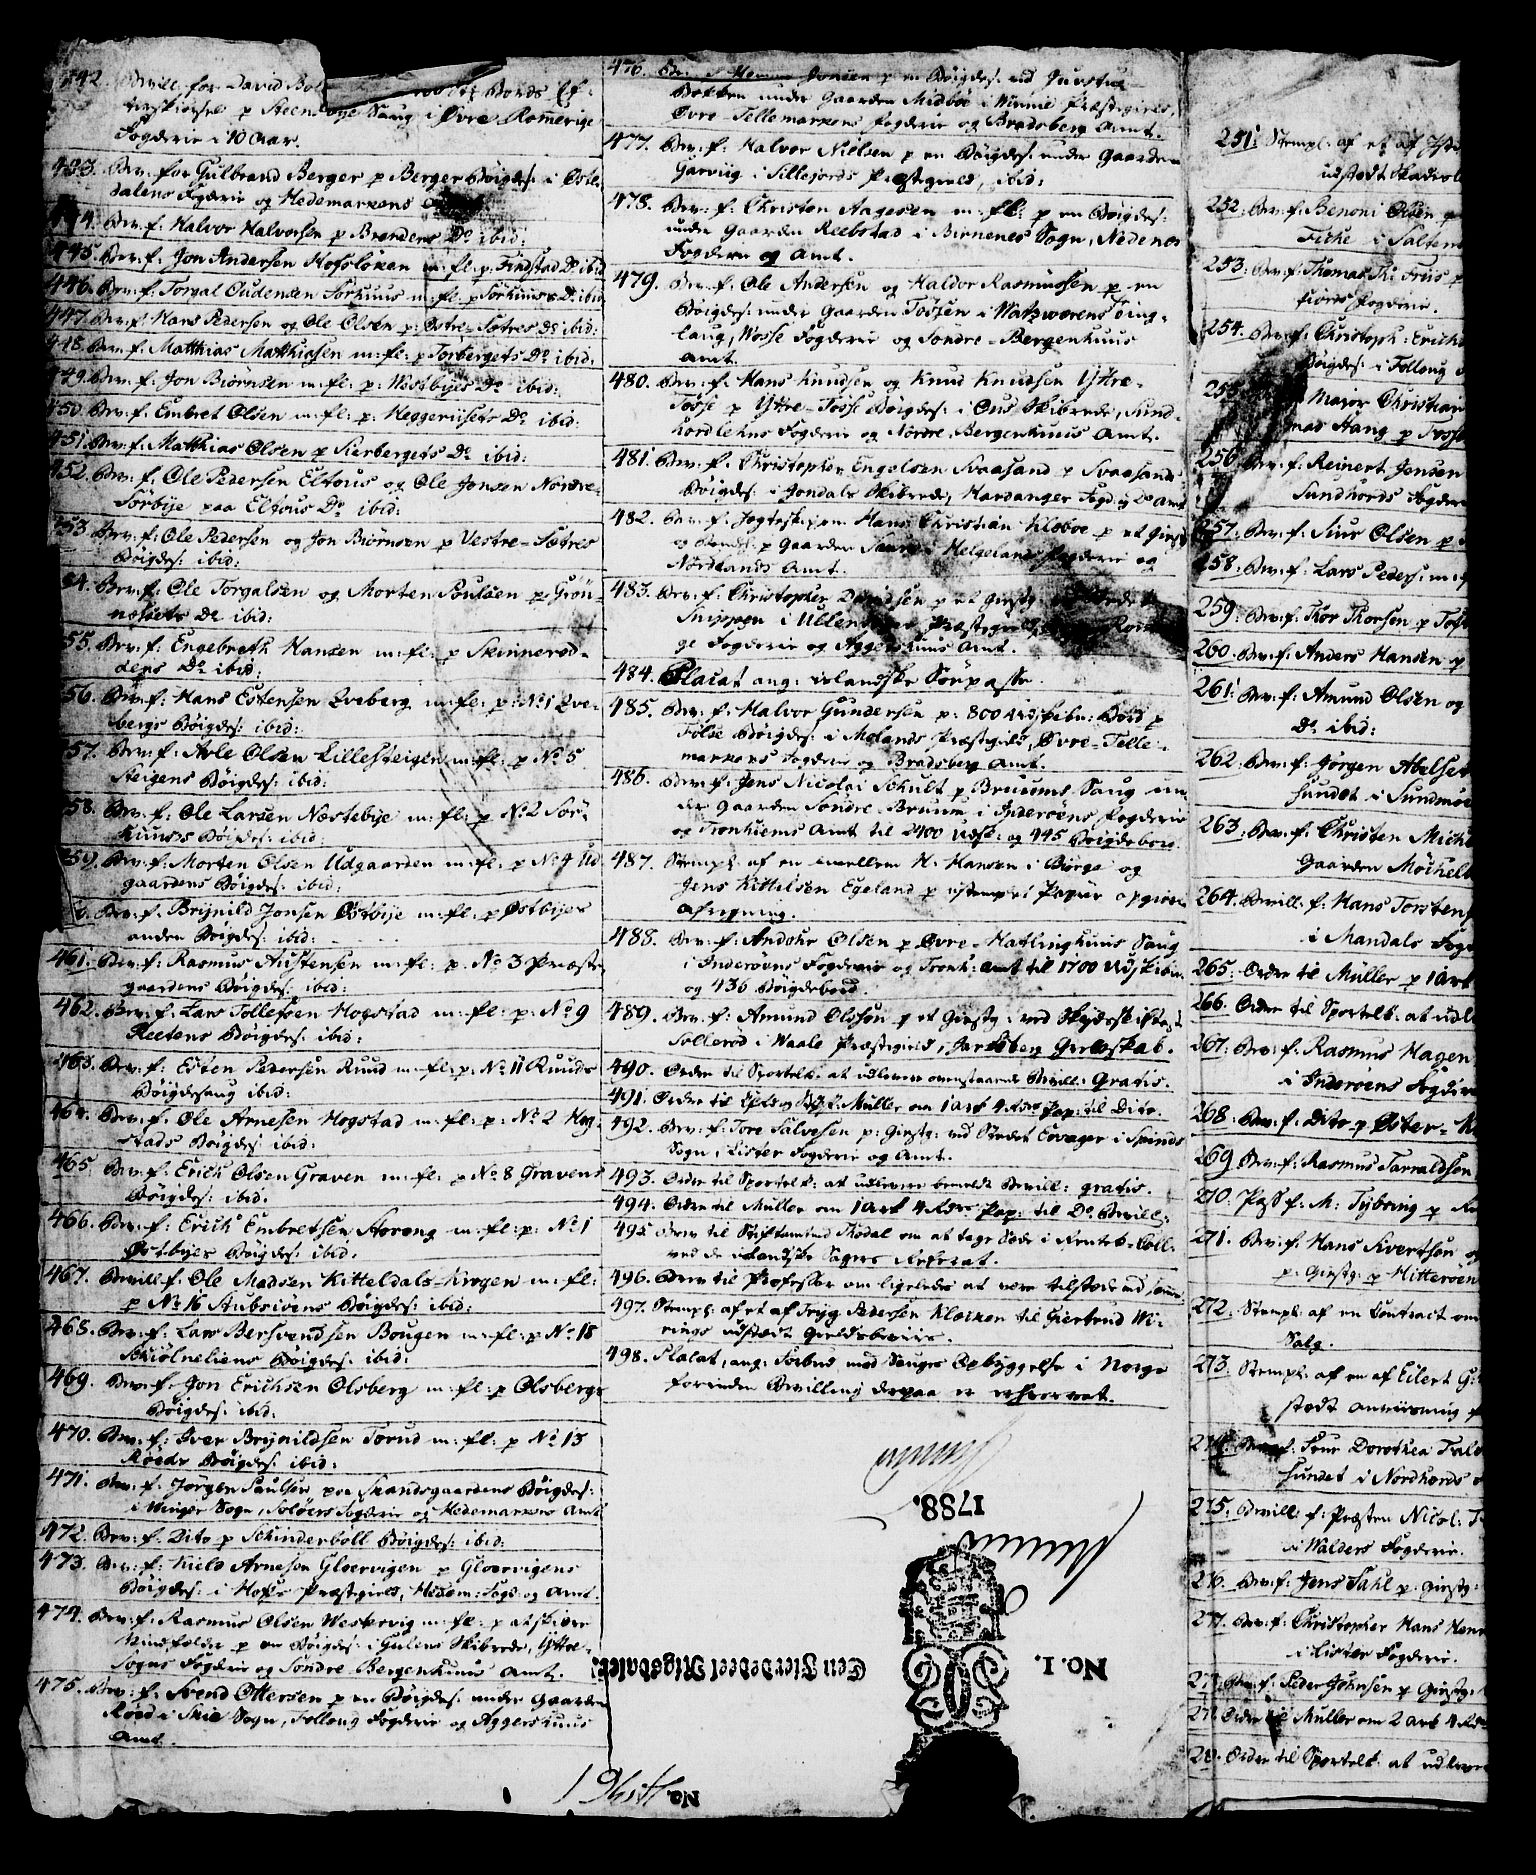 442. Bevill. for David Bords Ef-
terskiørsel p Steensbye Saug i Øvre Romerige
Fogderie i 10 Aar.
443. Bev: for Gulbrand Berger p Berger Böigdes: i Øste
dalens Fogderie og Hedemarkens
444. Bev. f. Halvor Halvorsen p Brendens Do ibid:
445. Bev. f. Jon Andersen Hofslöken m: fl: p: Findstad Do ibid
446. Bev. f: Torgal Oudensen Sörhuus m: fl: p Sörhuuss Do ibid
447. Bev: f: Hans Pedersen og Ole Olsen p: Østre-Sætres Do ibid:
448. Bev. f. Matthias Matthiasen m: fl: p Torbergets Do ibid:
449. Bev. f. Jon Biørnsen m: fl: p: Westbyes Do ibid:
450. Bev. f: Embret Olsen m: fl: p: Heggeriisets Do ibid:
451. Bev. f: Matthias Olsen p Sierbergets Do ibid:
452. Bev. f. Ole Pedersen Eltous og Ole Jonsen Nordre-
Sörbye paa Eltous Do ibid:
453. Bev. f: Ole Pedersen og Jon Biörnsen p Vestre-Sætres
Böigdes: ibid:
54. Bev. f: Ole Torgalsen og Morten Poulsen p Grön-
nesets Do ibid:
55. Bev. f: Engebreth Hansen m: fl: p Skinnerød-
dens Do ibid:
56. Bev. f: Hans Estensen Qveberg m: fl: p: No 1 Qve-
bergs Böigdes: ibid:
57. Bev. f: Arle Olsen Lillesteigen m: fl: p No 5
Steigens Böigdes: ibid:
58. Bev. f: Ole Larsen Næstebye m: fl: p No 2 Sör-
huuses Böigdes: ibid:
459. Bev. f: Morten Olsen Udgaarden m: fl: p No 4 Ud
gaardens Böigdes: ibid:
Bev. f. Brynild Jonsen Østbye m: fl: p Østbyes
anden Böigdes: ibid:
461. Bev. f: Rasmus Austensen m: fl: p. No 3 Præste-
gaardens Böigdes: ibid:
462. Bev. f. Lars Tollefsen Hogstad m: fl: p: No 9
Reetens Böigdes: ibid:
463. Bev. f. Esten Pedersen Ruud m: fl: p: No 11 Ruuds
Böigdesaug ibid:
464. Bev. f. Ole Arnesen Hogstad m: fl: p: No 2 Hog-
stads Böigdes: ibid:
465. Bev. f. Erich Olsen Graven m: fl: p No 8 Gravens
Böigdes: ibid.
466. Bev. f. Erich Embretsen Horeng m: fl: p: No 1
Østbyes Böigdes: ibid:
467. Bevill f. Ole Madsen Kitteldals-Krogen m: fl:
p No 16 Aubsiöens Böigdes: ibid:
468. Bev. f. Lars Bersvendsen Bougen m: fl: p No 18
Skiölneliens Böigdes: ibid:
469. Bev. f. Jon Erichsen Olsberg m: fl: p Olsbergs
Böigdes: ibid:
470. Bev. f: Iver Brynildsen Torud m: fl: p No 13
Röeds Böigdes: ibid:
471. Bev. f. Jörgen Paulsen paa Skandsgaardens Böigdes:
i Winger Sogn, Soløers Fogderie og Hedemarkens Amt
472. Bev. f. Dito p Schinderboll Böigdes: ibid:
473. Bev. f: Kield Arnesen Gloervigen p Gloervigens
Böigdes: i Hofs Præstegield, Hedem: Fogd: og Amt.
474. Bev. f. Rasmus Olsen Weskevig m: fl: p at skiære
Vindfælde p en Böigdes: i Gulens Skibrede, Yttre-
Sogns Fogderie og Söndre Bergenhuus Amt.
475. Bev: f. Svend Ottersen p en Böigdes: under Gaarden
Röed i Skie Sogn, Follong Fogderie og Aggershuus
Amt.
476. Jonsen p en Böigdes: ved
Bekken under Gaarden Midböe i Winnie Præstegield,
Øvre Tellemarkens Fogderie og Bradsberg Amt.
477. Bev: f: Halvor Nielsen p en Böigdes: under Gaarden
Garviig i Sillejords Præstegield, ibid:
478. Bev: f. Christen Aagesen m: fl: p en Böigdes:
under Gaarden Reebstad i Birnenes Sogn, Nedenes
Fogderie og Amt.
479. Bev. f. Ole Andersen og Haldor Rasmussen p en
Böigdes: under Gaarden Tössen i Watzwærens Ting-
laug, Wosse Fogderie og Söndre-Bergenhuus
Amt.
480. Bev. f. Hans Knudsen og Knud Knudsen Yttre-
Tösse p Yttre-Tösse Böigdes: i Ous Skibrede, Sund-
hordlehns Fogderie og Nordre Bergenhuus Amt.
481. Bev. f. Christopher Engelsen Svaasand p Svaasands
Böigdes: i Jondals Skibrede, Hardanger Fogd: og Do Amt
482. Bev. f. Jegteskipper Hans Christian Kleboe p et Giestg:
og p Gaarden i Helgelands Fogderie og
Nordlands Amt.
483. Bev: f: Christopher p et Giestg:
Snippen i Præstegield,
ge Fogderie og Aggershuus Amt.
484. Placat ang: islandske Söepasse.
485. Bev. f. Halvor Gundersen p: 800 udskibn: Bord p
Folse Böigdes: i Molands Præstegield, Øvre-Telle-
markens Fogderie og Bradsberg Amt.
486. Bev. f. Jens Nicolai Schult p Bruums Saug un-
der Gaarden Söndre-Bruum i Inderöens Fogderie
og Tronhiems Amt til 2400 udsk: og 445 Böigdebord.
487. Stempl: af en imellem H. Hansen i Börge og
Jens Kittelsen Egeland p ustemplet Papiir opgiven
Afregning.
488. Bev. f. Andohr Olsen p Øvre-Matlinghuus Saug
i Inderöens Fogderie og Tronh: Amt til 1700 udskibn:
og 436 Böigdebord.
489. Bev. f. Amund Olsson p et Giestg: ved Skydsskiftet
Sollerød i Waale Præstegield, Jarlsberg Grevskab.
490. Ordre til Sportelk: at udlevere ovenstaaende Bevill: Gratis.
491. Ordre til Müller om 1 Ark 4 Rdrs Pap: til Dito.
492. Bev. f. Tore Salvesen p: Giestg: ved Stædet Eevager i Spinds
Sogn, Lister Fogderie og Amt.
493. Ordre til Sportelk: at udlevere bemeldt Bevill: gratis.
494. Ordre til Müller om 1 Ark 4 Rdrs Pap: til Do Bevill:
495. Brev til Stiftamtmd Thodal om at tage Sæde i Rentek-Coll:
ved de islandske Sagers Referat.
496. Brev til Professor om ligeledes at være tilstæde ved samme
497. Stempl: af et af Tryg Pedersen Kloeken til Giertrud Wi-
rings udstædt Gieldsbeviis.
498. Placat, ang: Forbud mod Sauges Opbyggelse i Norge
forinden Bevilling derpaa er erhvervet.
1788.
No. 1.
Een Fierdedeel Rigsdaler.
No
251. Stempl: af et af
udstædt Skadesl
252. Bev. f. Benoni Olsen p
Fiche i Saltens
253. Bev. f: Thomas Th: Friis p
fiords Fogderie.
254. Bev. f. Christoph: Erichs
Böigdes: i Follong
255. Major Christian
mas Hang p Foss
256. Bev. f. Reinert Jensen
Sundhords Fogderie
257. Bev. f: Siur Olsen p
258. Bev. f: Lars Peders: m: f
259. Bev. f: Thor Thorsen p Tos
260. Bev. f: Anders Hansen p
261. Bev: f: Amund Olsen og
Do ibid:
262. Bev. f: Jørgen Abelset
sundet i Sundmör
263. Bev. f: Christen Mich
Gaarden Möchel
264. Bevill: f: Hans Torsten
i Mandals Fogd
265. Ordre til Müller p 1 Ark
266. Ordre til Sportelk: at udl
267. Bev: f: Rasmus Hagen
i Inderöens Fogderie
268. Bev. f. Dito p Øster-
269. Bev. f: Rasmus Tarraldsen
270. Pass f. M: Tybring p
271. Bev. f: Hans Sivertsen og
p: Giestg: p Hitteröen
272. Stempl: af en Contract om
Salg.
273. Stempl: af en af Eilert G:
stædt Anviisning p
274. Bev. f: Frue Dorothea Fal
sundet i Nordhords
275. Bevill: f: Præsten Nicol:
i Walders Fogderie.
276. Bev. f: Jens Sahl p: Giestg:
277. Bev. f: Christopher Hans Hen
i Lister Fogderie.
27 Bev. f. Peder Johnsen p Giestg:
27 Ordre til Müller om 2 Ark 4 Rdrs
28. Ordre til Sportelk: at udlevere